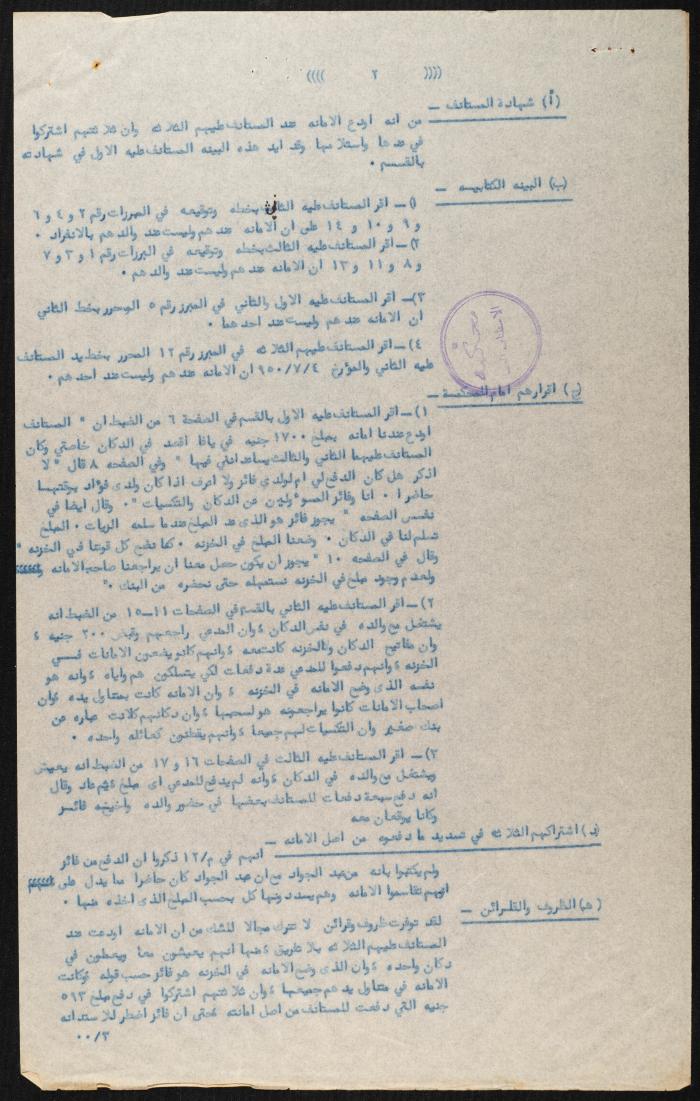 (((( ٢ ))))
(أ) شهادة المستانف —
من انه اودع الامانه عند المستانف عليهم الثلاثه وان ثلاثتهم اشتركوا
في عدها واستلامها وقد ايد هذه البينه المستانف عليه الاول في شهادته
بالقسم ٠
(ب) البينه الكتابيه —
١) — اقر المستانف عليه الثاني بخطه وتوقيعه في المبرزات رقم ٢ و ٤ و ٦
و ٩ و ١٠ و ١٤ على ان الامانه عندهم وليست عند والدهم بالانفراد ٠
٢) — اقر المستانف عليه الثالث بخطه وتوقيعه في المبرزات رقم ١ و ٣ و ٧
و ٨ و ١١ و ١٣ ان الامانه عندهم وليست عند والدهم ٠
٣) — اقر المستانف عليه الاول والثاني في المبرز رقم ٥ المحرر بخط الثاني
ان الامانه عندهم وليست عند احدهما ٠
٤) — اقر المستانف عليهم الثلاثه في المبرز رقم ١٢ المحرر بخط يد المستانف
عليه الثاني والمؤرخ ٩٥٠/٧/٤ ان الامانه عندهم وليست عند احدهم ٠
(ج) اقرارهم امام المحكمة —
١) — اقر المستانف عليه الاول بالقسم في الصفحة ٦ من الضبط ان " المستانف
اودع عندنا امانه بمبلغ ١٧٠٠ جنيه في يافا اقصد في الدكان خاصتي وكان
المستانف عليهما الثاني والثالث يساعدانني فيها " وفي الصفحه ٨ قال " لا
اذكر هل كان الدفع لي ام لولدي فائز ولا اعرف اذا كان ولدى فؤاد بوقتهما
حاضرا ٠ انا وفائز المسؤولين عن الدكان والتكسيات " ٠ وقال ايضا في
نفس الصفحه " يجوز فائز هو الذى عد المبلغ عندما سلمه الزيات ٠ المبلغ
تسلم لنا في الدكان ٠ وضعنا المبلغ في الخزنه ٠ كنا نضع كل قوتنا في الخزنه "
وقال في الصفحه ١٠ " يجوز ان يكون حصل معنا ان يراجعنا صاحب الامانه
ولعدم وجود مبلغ في الخزنه نستمهله حتى نحضره من البنك ٠"
٢) — اقر المستانف عليه الثاني بالقسم في الصفحات ١١—١٥ من الضبط انه
يشتغل مع والده في نفس الدكان ، وان المدعي راجعهم وقبض ٢٠٠ جنيه ،
وان مفاتيح الدكان والخزنه كانت معه ، وانهم كانو يضعون الامانات في
الخزنه ، وانهم دفعوا للمدعي عدة دفعات لكي يتملكون هم واياه ، وانه هو
نفسه الذى وضع الامانه في الخزنه ، وان الامانه كانت بمتناول يده ، وان
اصحاب الامانات كانوا يراجعونه هو لسحبها ، وان دكانهم كانت عباره عن
بنك صغير وان التكسيات لهم جميعا ، وانهم يقطنون كعائله واحده ٠
٣) — اقر المستانف عليه الثالث في الصفحات ١٦ و ١٧ من الضبط انه يعيش
ويشتغل مع والده في الدكان ، وانه لم يدفع للمدعي اى مبلغ ثم عاد وقال
انه دفع سبعة دفعات للمستانف بعضها في حضور والده واخيه فائز
وكانا يوقعان معه
(د) اشتراكهم الثلاثه في تسديد ما دفعوه من اصل الامانه —
انهم في م/١٢ ذكروا ان الدفع من فائز
ولم يكتبوا بانه من عبد الجواد مع ان عبد الجواد كان حاضرا مما يدل على
انهم تقاسموا الامانه وهم يسددونها كل بحسب المبلغ الذى اخذه منها ٠
(هـ) الظروف والقرائن —
لقد توفرت ظروف وقرائن لا تترك مجالا للشك من ان الامانه اودعت عند
المستانف عليهم الثلاثه بلا تفريق ، منها انهم يعيشون معا ويعملون في
دكان واحده ، وان الذى وضع الامانه في الخزنه هو فائز حسب قوله ، وكانت
الامانه في متناول يدهم جميعها ، وان ثلاثتهم اشتركوا في دفع مبلغ ٥٩٣
جنيه التي دفعت للمستانف من اصل امانته ، حتى ان فائز اضطر للاستدانه
٠٠/٣